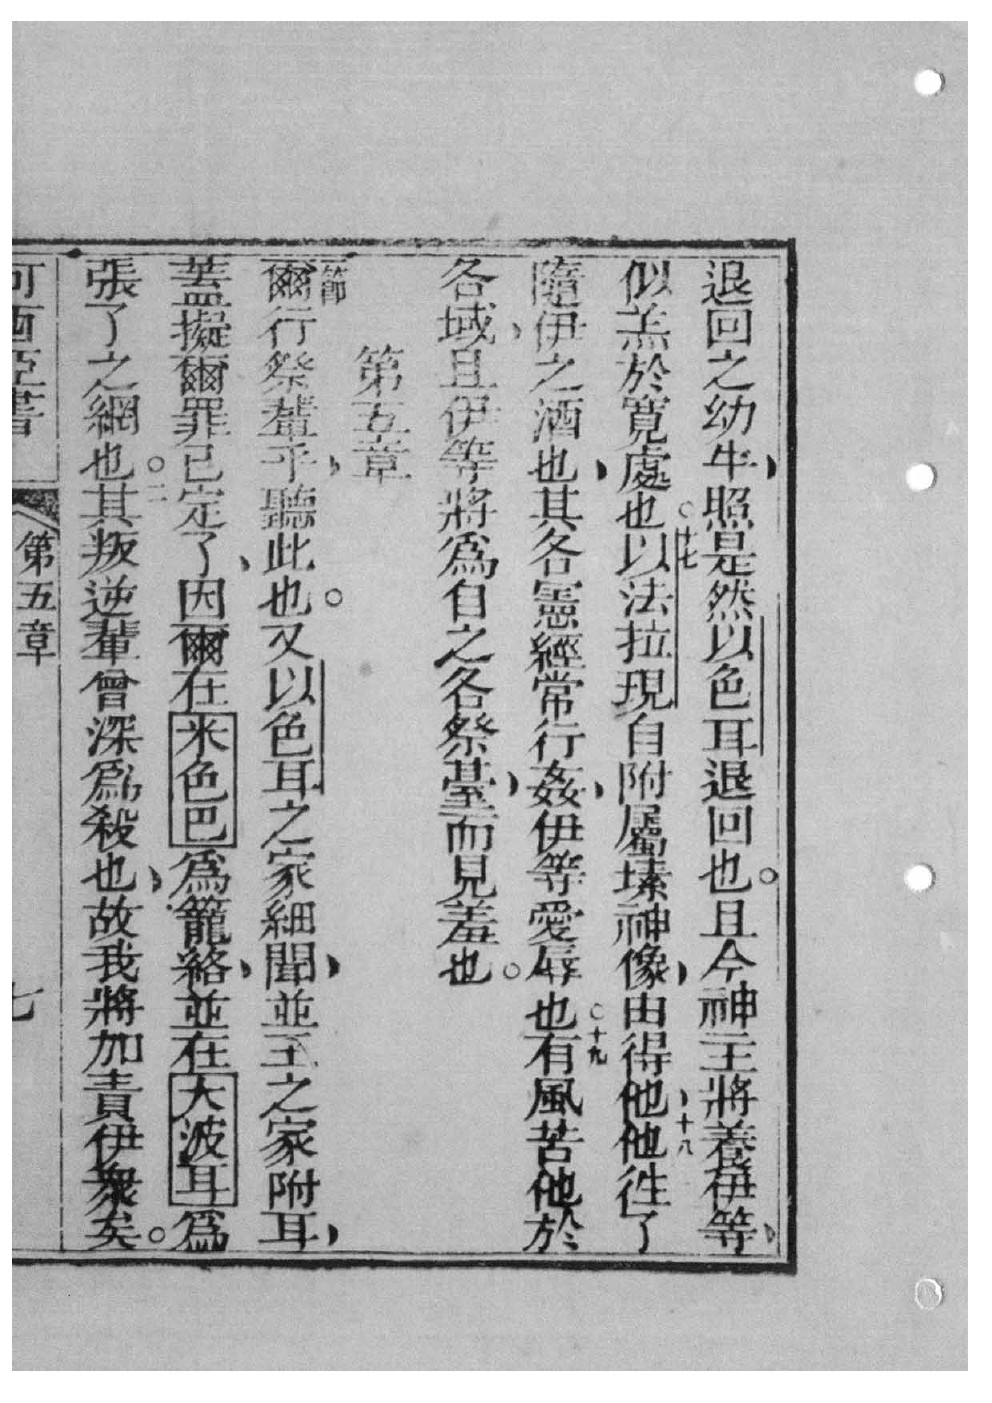 退回之幼牛、照是然以色耳退回也。且今神主將養伊等、
似羔於寬處也。十七以法拉現自附屬塐神像、由得他、十八他徃了
隨伊之酒也、其各憲經常行姦、伊等愛辱也。十九有風苦他於
各域、且伊等將爲自之各祭䑓、而見羞也。
第五章
一節爾行祭輩乎、聽此也。又以色耳之家細聞、並王之家附耳、
葢擬爾罪已定了、因爾在米色巴爲籠絡、並在大波耳爲
張了之網也。二其叛逆輩曾深爲殺也、故我將加責伊衆矣。
何西亞書
第五章
七